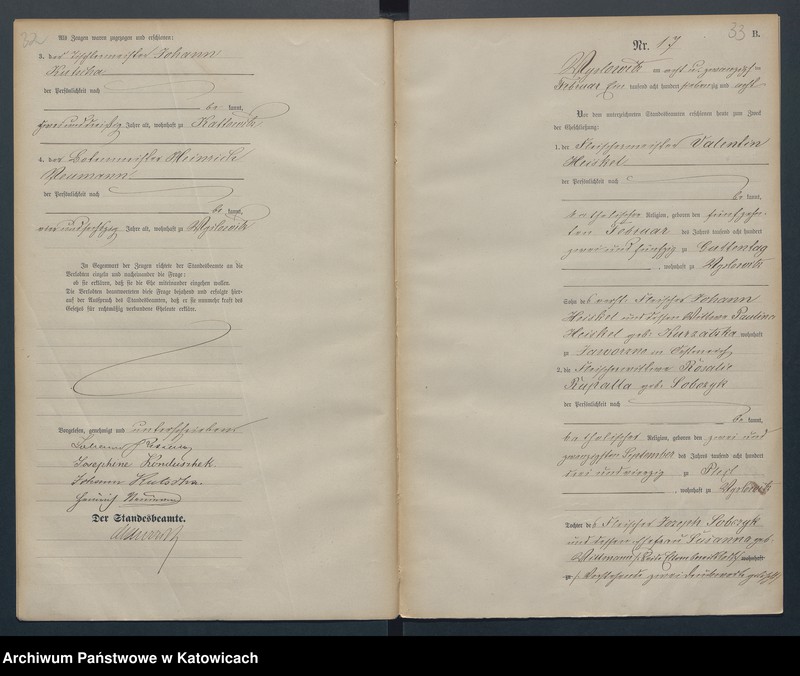 32
Als Zeugen waren zugezogen und erschienen:
3. der Tischlermeister Johann
Kutscha
der Persönlichkeit nach
be kannt,
zweiunddreißig Jahre alt, wohnhaft zu Kattowitz
4. der Botenmeister Heinrich
Neumann
der Persönlichkeit nach
be kannt,
vierundsechszig Jahre alt, wohnhaft zu Myslowitz
In Gegenwart der Zeugen richtete der Standesbeamte an die
Verlobten einzeln und nacheinander die Frage:
ob sie erklären, daß sie die Ehe miteinander eingehen wollen.
Die Verlobten beantworteten diese Frage bejahend und erfolgte hier-
auf der Ausspruch des Standesbeamten, daß er sie nunmehr kraft des
Gesetzes für rechtmäßig verbundene Eheleute erkläre.
Vorgelesen, genehmigt und unterschrieben
Josephine
Johann Kutscha
Heinrich Neumann
Der Standesbeamte.
33
B.
Nr. 17
Myslowitz am acht u. zwanzigsten
Februar Ein tausend acht hundert siebenzig und acht
Vor dem unterzeichneten Standesbeamten erschienen heute zum Zweck
der Eheschließung:
1. der Fleischermeister Valentin
Heiskel
der Persönlichkeit nach
be kannt,
katholischer Religion, geboren den fünfzehn-
ten Februar des Jahres tausend acht hundert
zwei und fünfzig zu
, wohnhaft zu Myslowitz
Sohn des verst. Fleischer Johann
Heiskel und dessen Wittwe Pauline
Heiskel geb. wohnhaft
zu Jaworzno in Oesterreich
2. die Fleischerwittwe Rosalie
geb. Sobczyk
der Persönlichkeit nach
be kannt,
katholischer Religion, geboren den zwei und
zwanzigsten September des Jahres tausend acht hundert
drei und vierzig zu Pleß
, wohnhaft zu Myslowitz
Tochter des Fleischer Joseph Sobczyk
und dessen Ehefrau Susanna geb.
Wittmann wohnhaft
zu Vorstehende zwei Druckworte gelöscht
Archiwum Państwowe w Katowicach